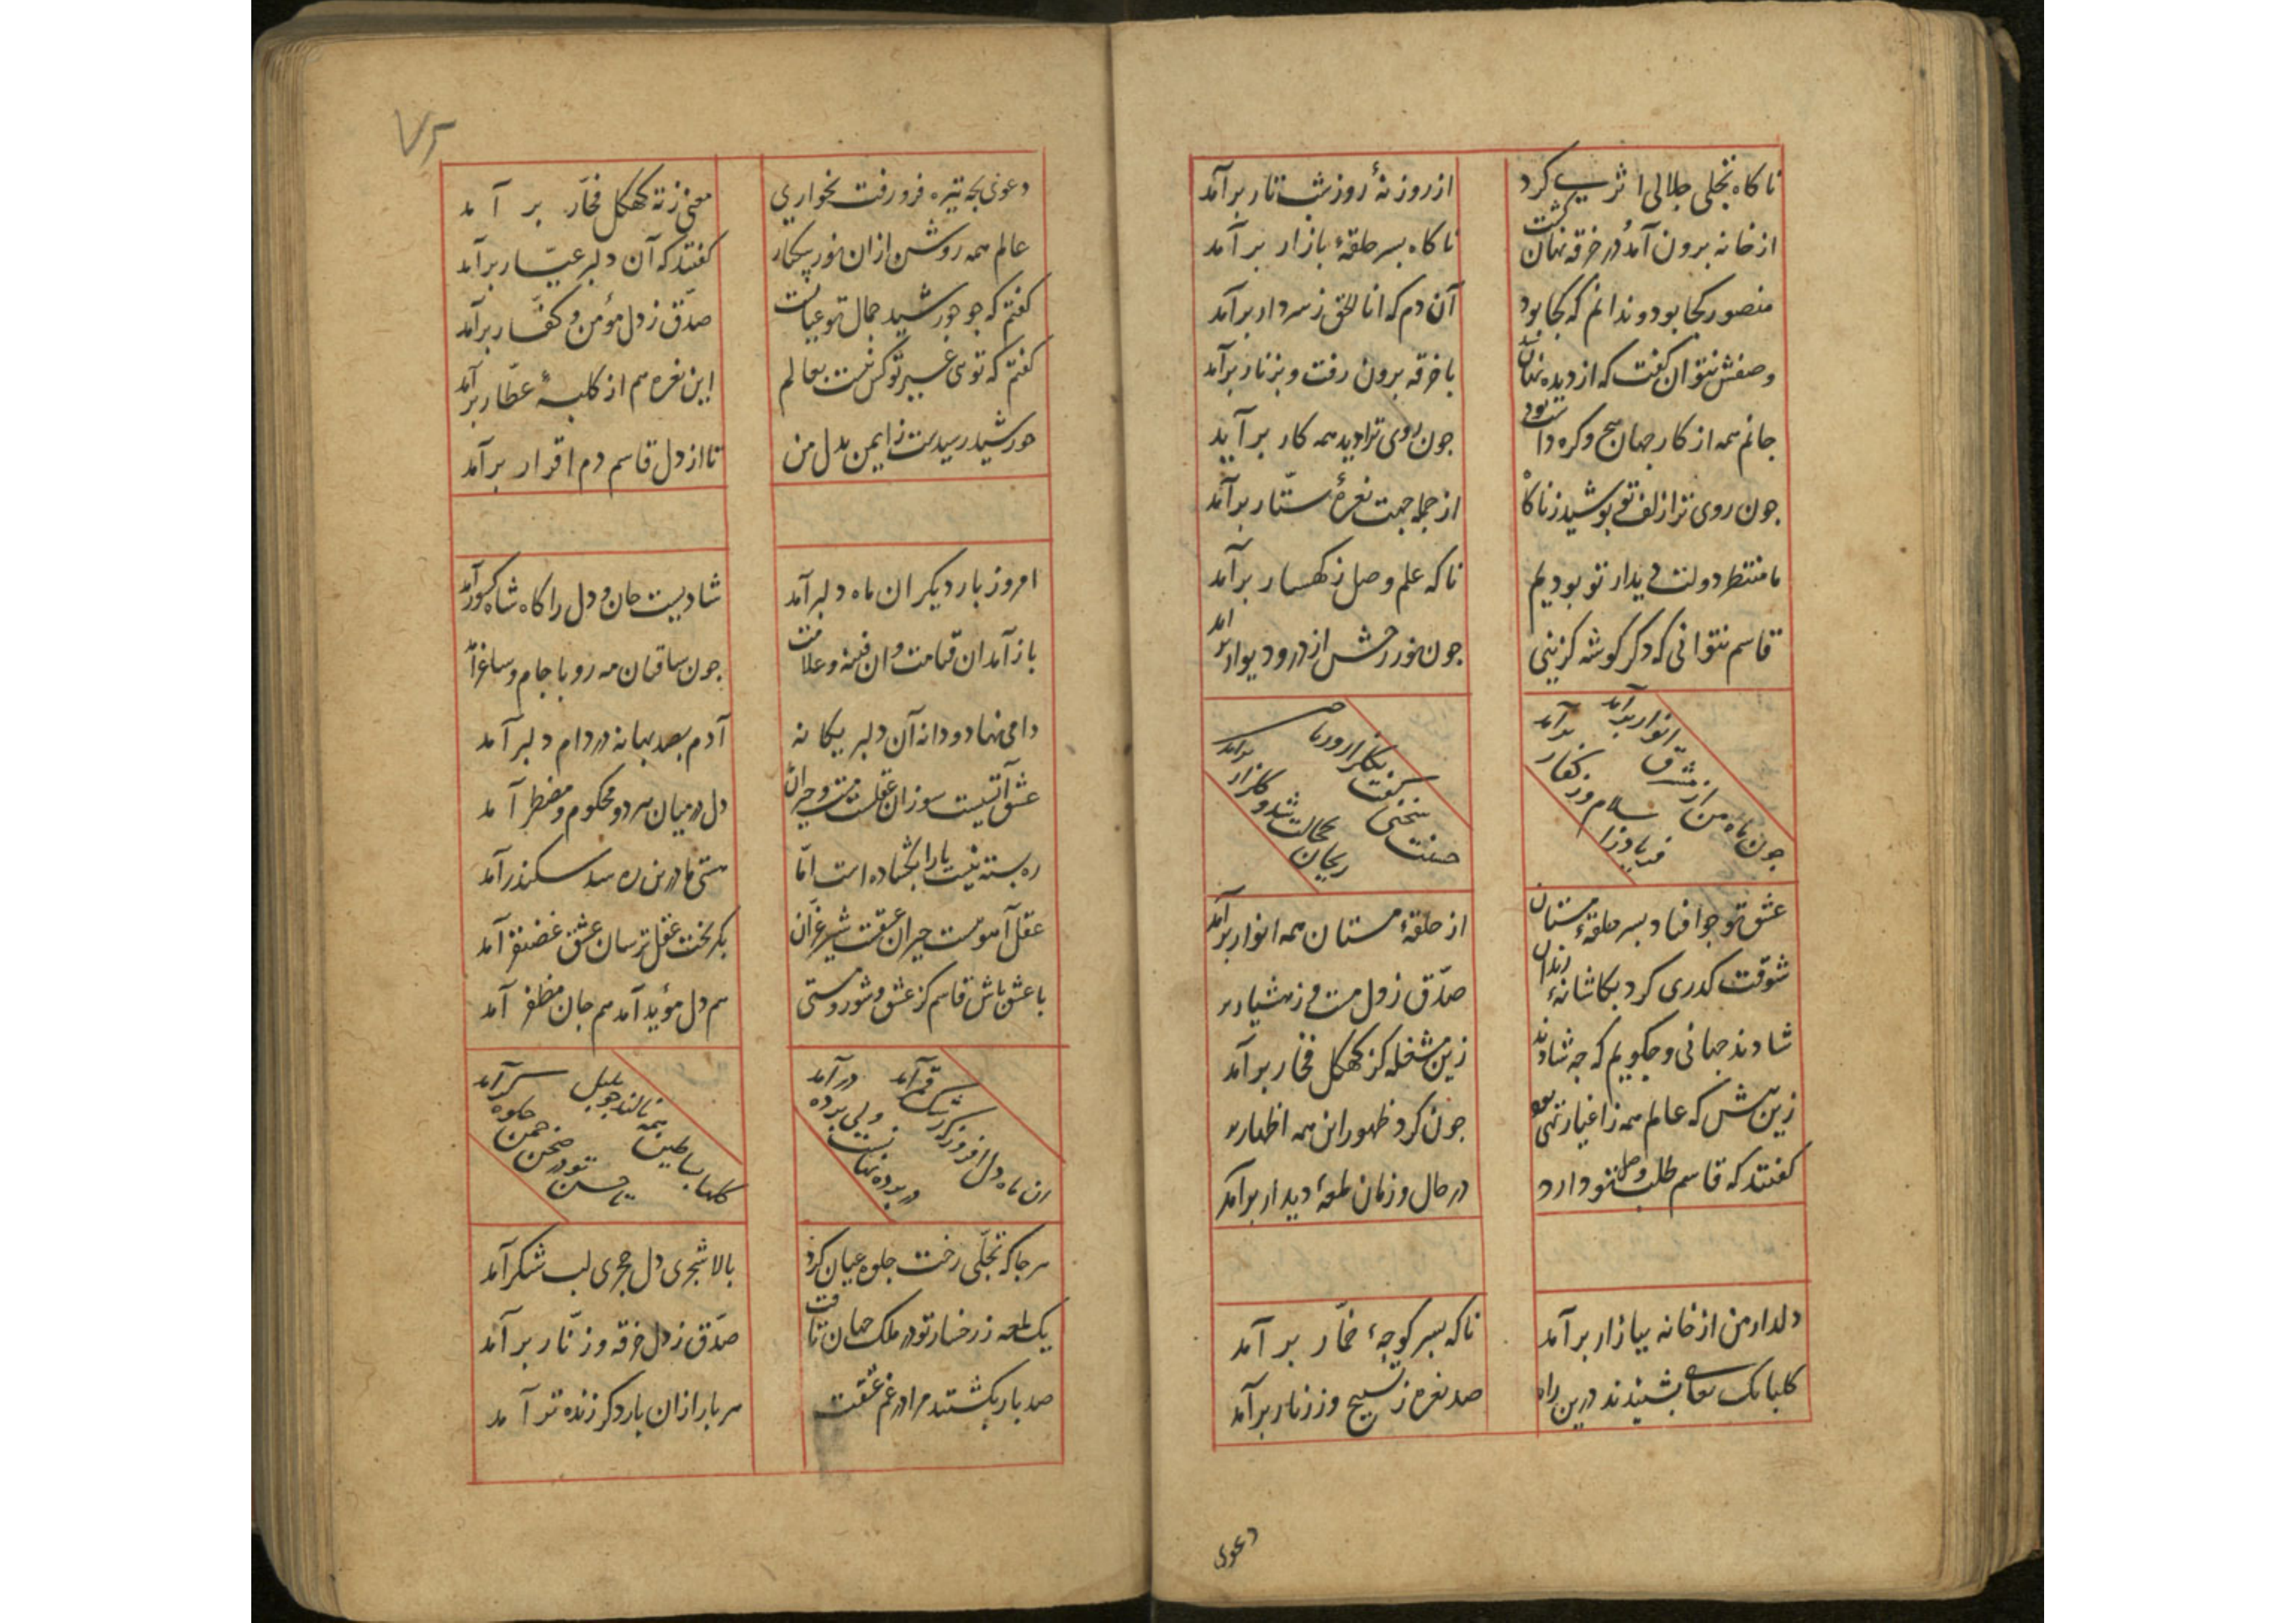 ناکاه تجلی جلالی اثری کرد
از روزنهٔ روز شب تار برآمد
از خانه برون آمد و در خرقه نهان کشت
ناکاه بسر حلقهٔ بازار برآمد
منصور کجا بود و ندانم که کجا بود
آن دم که انا الحق ز سر دار برآمد
وصفش نتوان کفت که از دیده نهان شد
با خرقه برون رفت و بزنار برآمد
جانم همه از کار جهان هیچ و کره داشت
جون روی ترا دید همه کار برآید
جون روی ترا زلف تو پوشید ز ناکاه
از جمله جهت نعرهٔ ستار برآمد
ما منتظر دولت دیدار تو بودیم
ناکه علم وصل ز کهسار برآمد
قاسم نتوانی که دکر کوشه کزینی
جون نور رخش از در و دیوار بر آمد
جون ماه من از مشرق انوار برآمد
فریاد ز اسلام و ز کفار برآمد
صفت سخنی کفت بکلزار
ریحان بخجالت شد و کلزار برآمد
عشق تو جو افتاد بسر حلقهٔ مستان
از حلقهٔ مستان همه انوار برآمد
شوقت کذری کرد بکاشانهٔ رندان
صدق ز دل مست و ز هشیار بر
شادند جهانی و جکویم که جه شادند
زین مشغله کز کهکل فخار برآمد
زین پیش که عالم همه ز اغیار تهی بود
جون کرد ظهور این همه اظهار بر
کفتند که قاسم طلب وصل تو دارد
در حال و زمان لمعهٔ دیدار برآمد
دلدار من از خانه ببازار برآمد
ناکه بسر کوجهٔ خمار برآمد
کلبانک بشنیدند درین راه
صد نعره ز تسبیح و ز زنار برآمد
دعوی
۷۵
دعوی بجه تیره فرو رفت بخواری
معنی ز ته کهکل فخار بر آمد
عالم همه روشن از ان نور بیکبار
کفتند که آن دلبر عیّار برآمد
کفتم که جو خورشید جمال تو عیانست
صدق ز دل مؤمن و کفار برآمد
کفتم که توی غیر تو کس نیست بعالم
این نعره هم از کلبهٔ عطّار برآمد
خورشید رسیدست ز ایمن بدل من
تا از دل قاسم دم اقرار برآمد
امروز بار دیکر ان ماه دلبر آمد
شادیست جان و دل را کاه شاه کشور آمد
باز آمد ان قیامت و ان فتنه و علامت
جون ساقیان مه رو با جام و ساغر آمد
دامی نهاد و دانه آن دلبر یکانه
آدم بصد بهانه در دام دلبر آمد
عشق آتشیست سوزان عقلست مست و حیران
دل در میان هر دو محکوم و مضطر آمد
ره بسته نیست یارا بکشاده است امّا
هستی ما درین ره سد سکندر آمد
عقل آهویست حیران عشقت شیر غرّان
بکریخت عقل ترسان عشق غضنفر آمد
با عشق باش قاسم کز عشق و شور و مستی
هم دل مؤید آمد هم جان مظفر آمد
ان ماه دل افروز کز رشک قمر آمد
در برده نهانست ولی برده در آمد
کلها ببساطین همه نالند جو بلبل
تا حسن تو در صحن جمن جلوه کر آمد
هر جا که تجلّی رخت جلوه عیان کرد
بالا شجری دل حجری لب شکر آمد
یک لمعه ز رخسار تو در ملک جهان تافت
صدق ز دل خرقه و زنّار بر آمد
صد بار بکشتند مرا در غم عشقت
هر بار از ان بار دکر زنده تر آمد